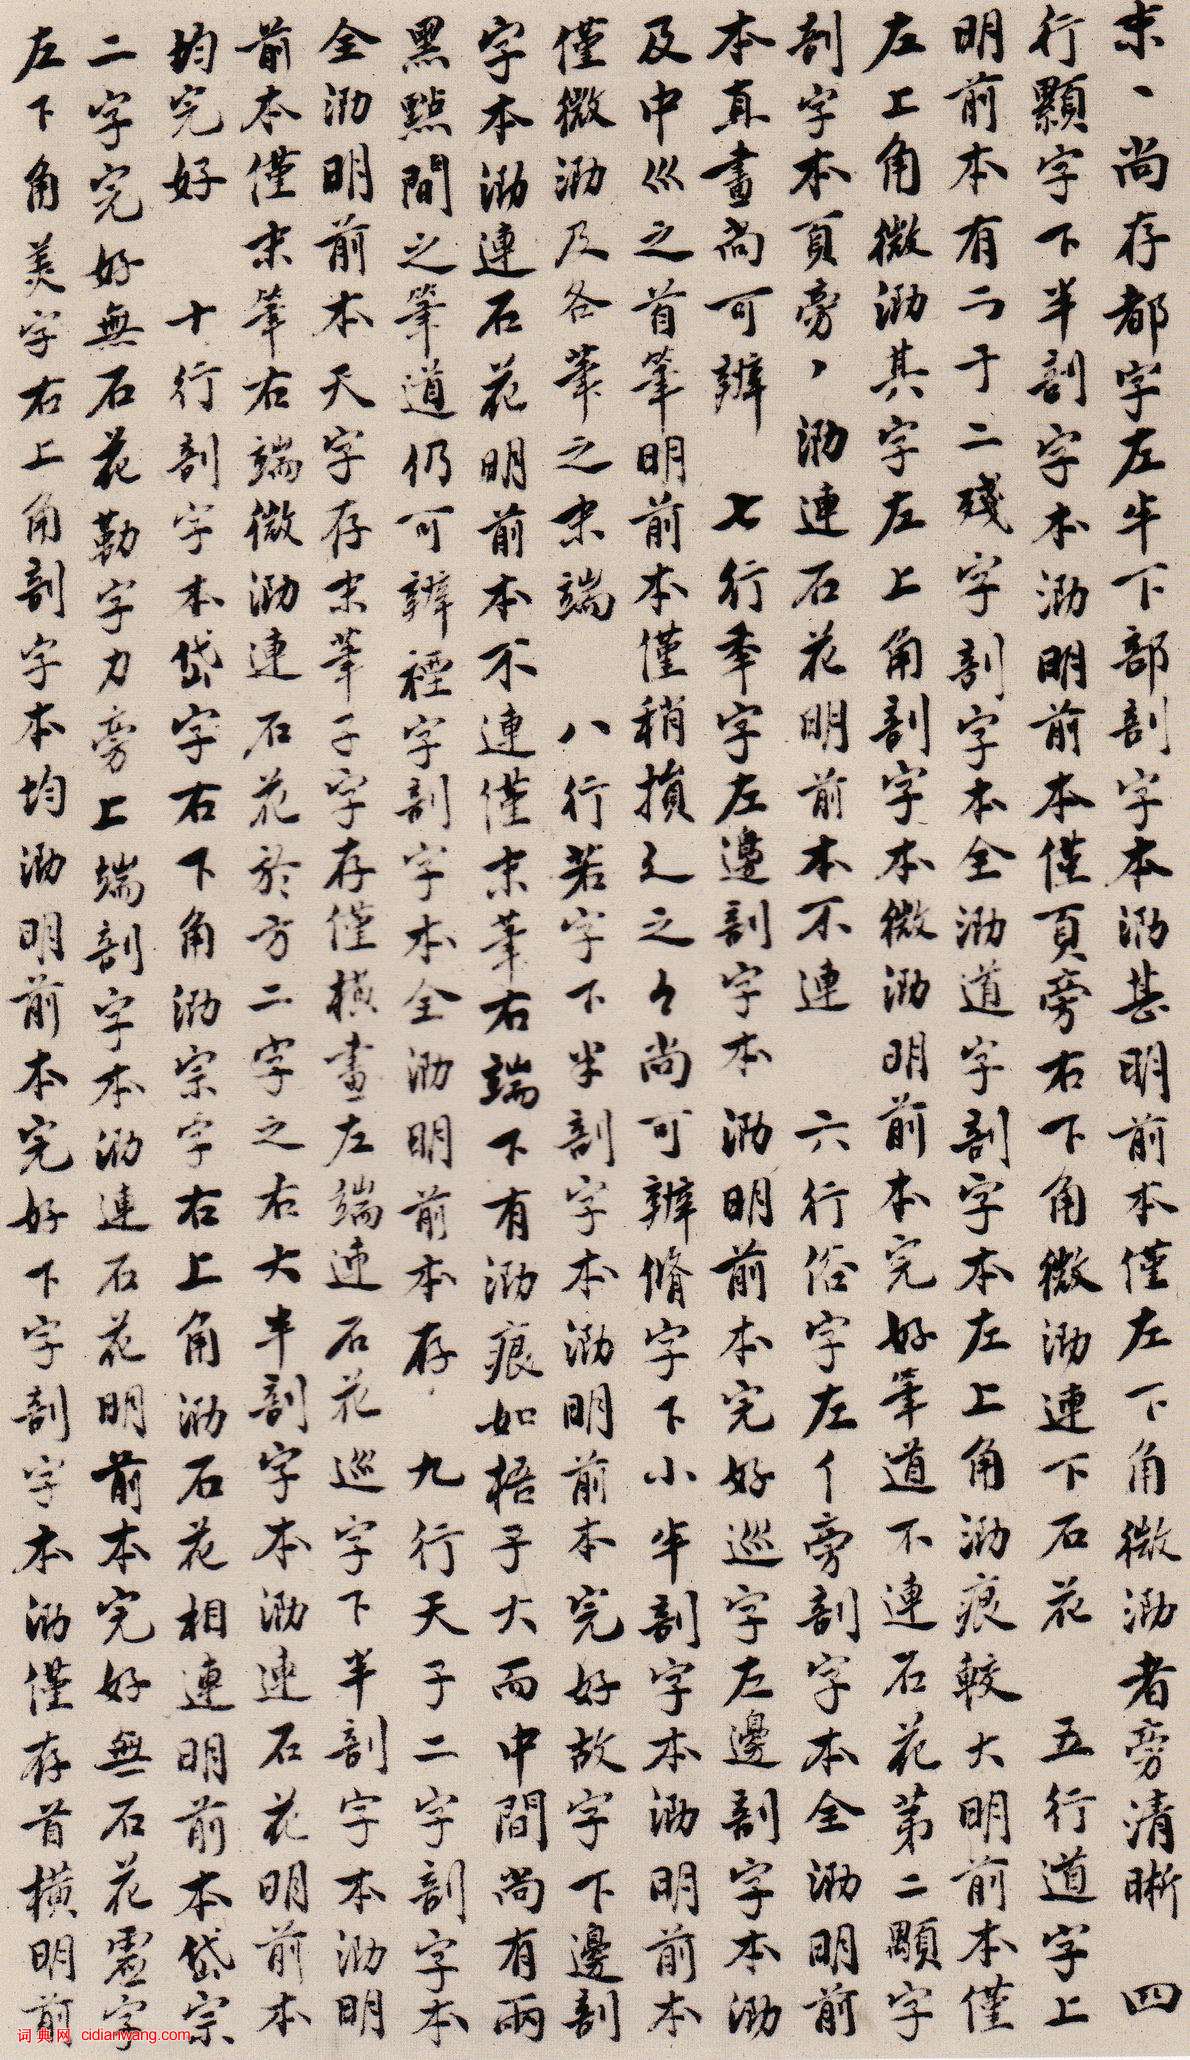 末丶尚存都字左半下部剖字本泐甚明前本僅左下角微泐者旁清晰　四
行顯字下半剖字本泐明前本僅頁旁右下角微泐連下石花　五行道字上
明前本有二于二殘字剖字本全泐道字剖字本左上角泐痕較大明前本僅
左上角微泐其字左上角剖字本微泐明前本完好筆道不連石花第二顯字
剖字本頁旁丶泐連石花明前本不連　六行俗字左亻旁剖字本全泐明前
本直畫尚可辨　七行季字左邊剖字本泐明前本完好巡字左邊剖字本泐
及中巛之首筆明前本僅稍損辶之尚可辨脩字下小半剖字本泐明前本
僅微泐及各筆之末端　八行若字下半剖字本泐明前本完好故字下邊剖
字本泐連石花明前本不連僅末筆右端下有泐痕如梧子大而中間尚有兩
黑點間之筆道仍可辨禋字剖字本全泐明前本存　九行天子二字剖字本
全泐明前本天字存末筆子字存僅橫畫左端連石花巡字下半剖字本泐明
前本僅末筆右端微泐連石花於方二字之右大半剖字本泐連石花明前本
均完好　十行剖字本岱字右下角泐宗字右上角泐石花相連明前本岱宗
二字完好無石花勒字力旁上端剖字本泐連石花明前本完好無石花虛字
左下角美字右上角剖字本均泐明前本完好下字剖字本泐僅存首橫明前
词典网 cidianwang.com